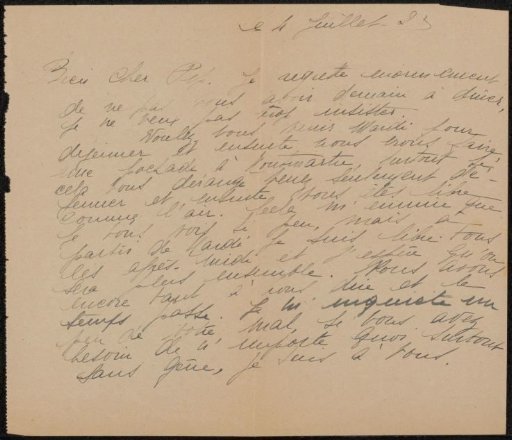 le 4 Juillet 3
Bien cher Pét. Je regrette énormément
de ne pas vous avoir demain à dîner,
Je ne veux pas trop insister.
Voulez vous venir Mardi pour
déjeuner et ensuite nous irons faire
une pochade à Montmartre, surtout si
cela vous dérange venez seulement dé-
jeuner et ensuite vous êtes libre
comme l'air. Cela m'ennuie que
je vous vois si peu, mais à
partir de Mardi je suis libre tous
les après-midi et j'espère qu'on
sera plus ensemble. Nous avons
encore tant à nous dire et le
temps passe. Je m'inquiète un
peu de votre mal, si vous avez
besoin de n'importe quoi surtout
sans gêne, je suis à vous.